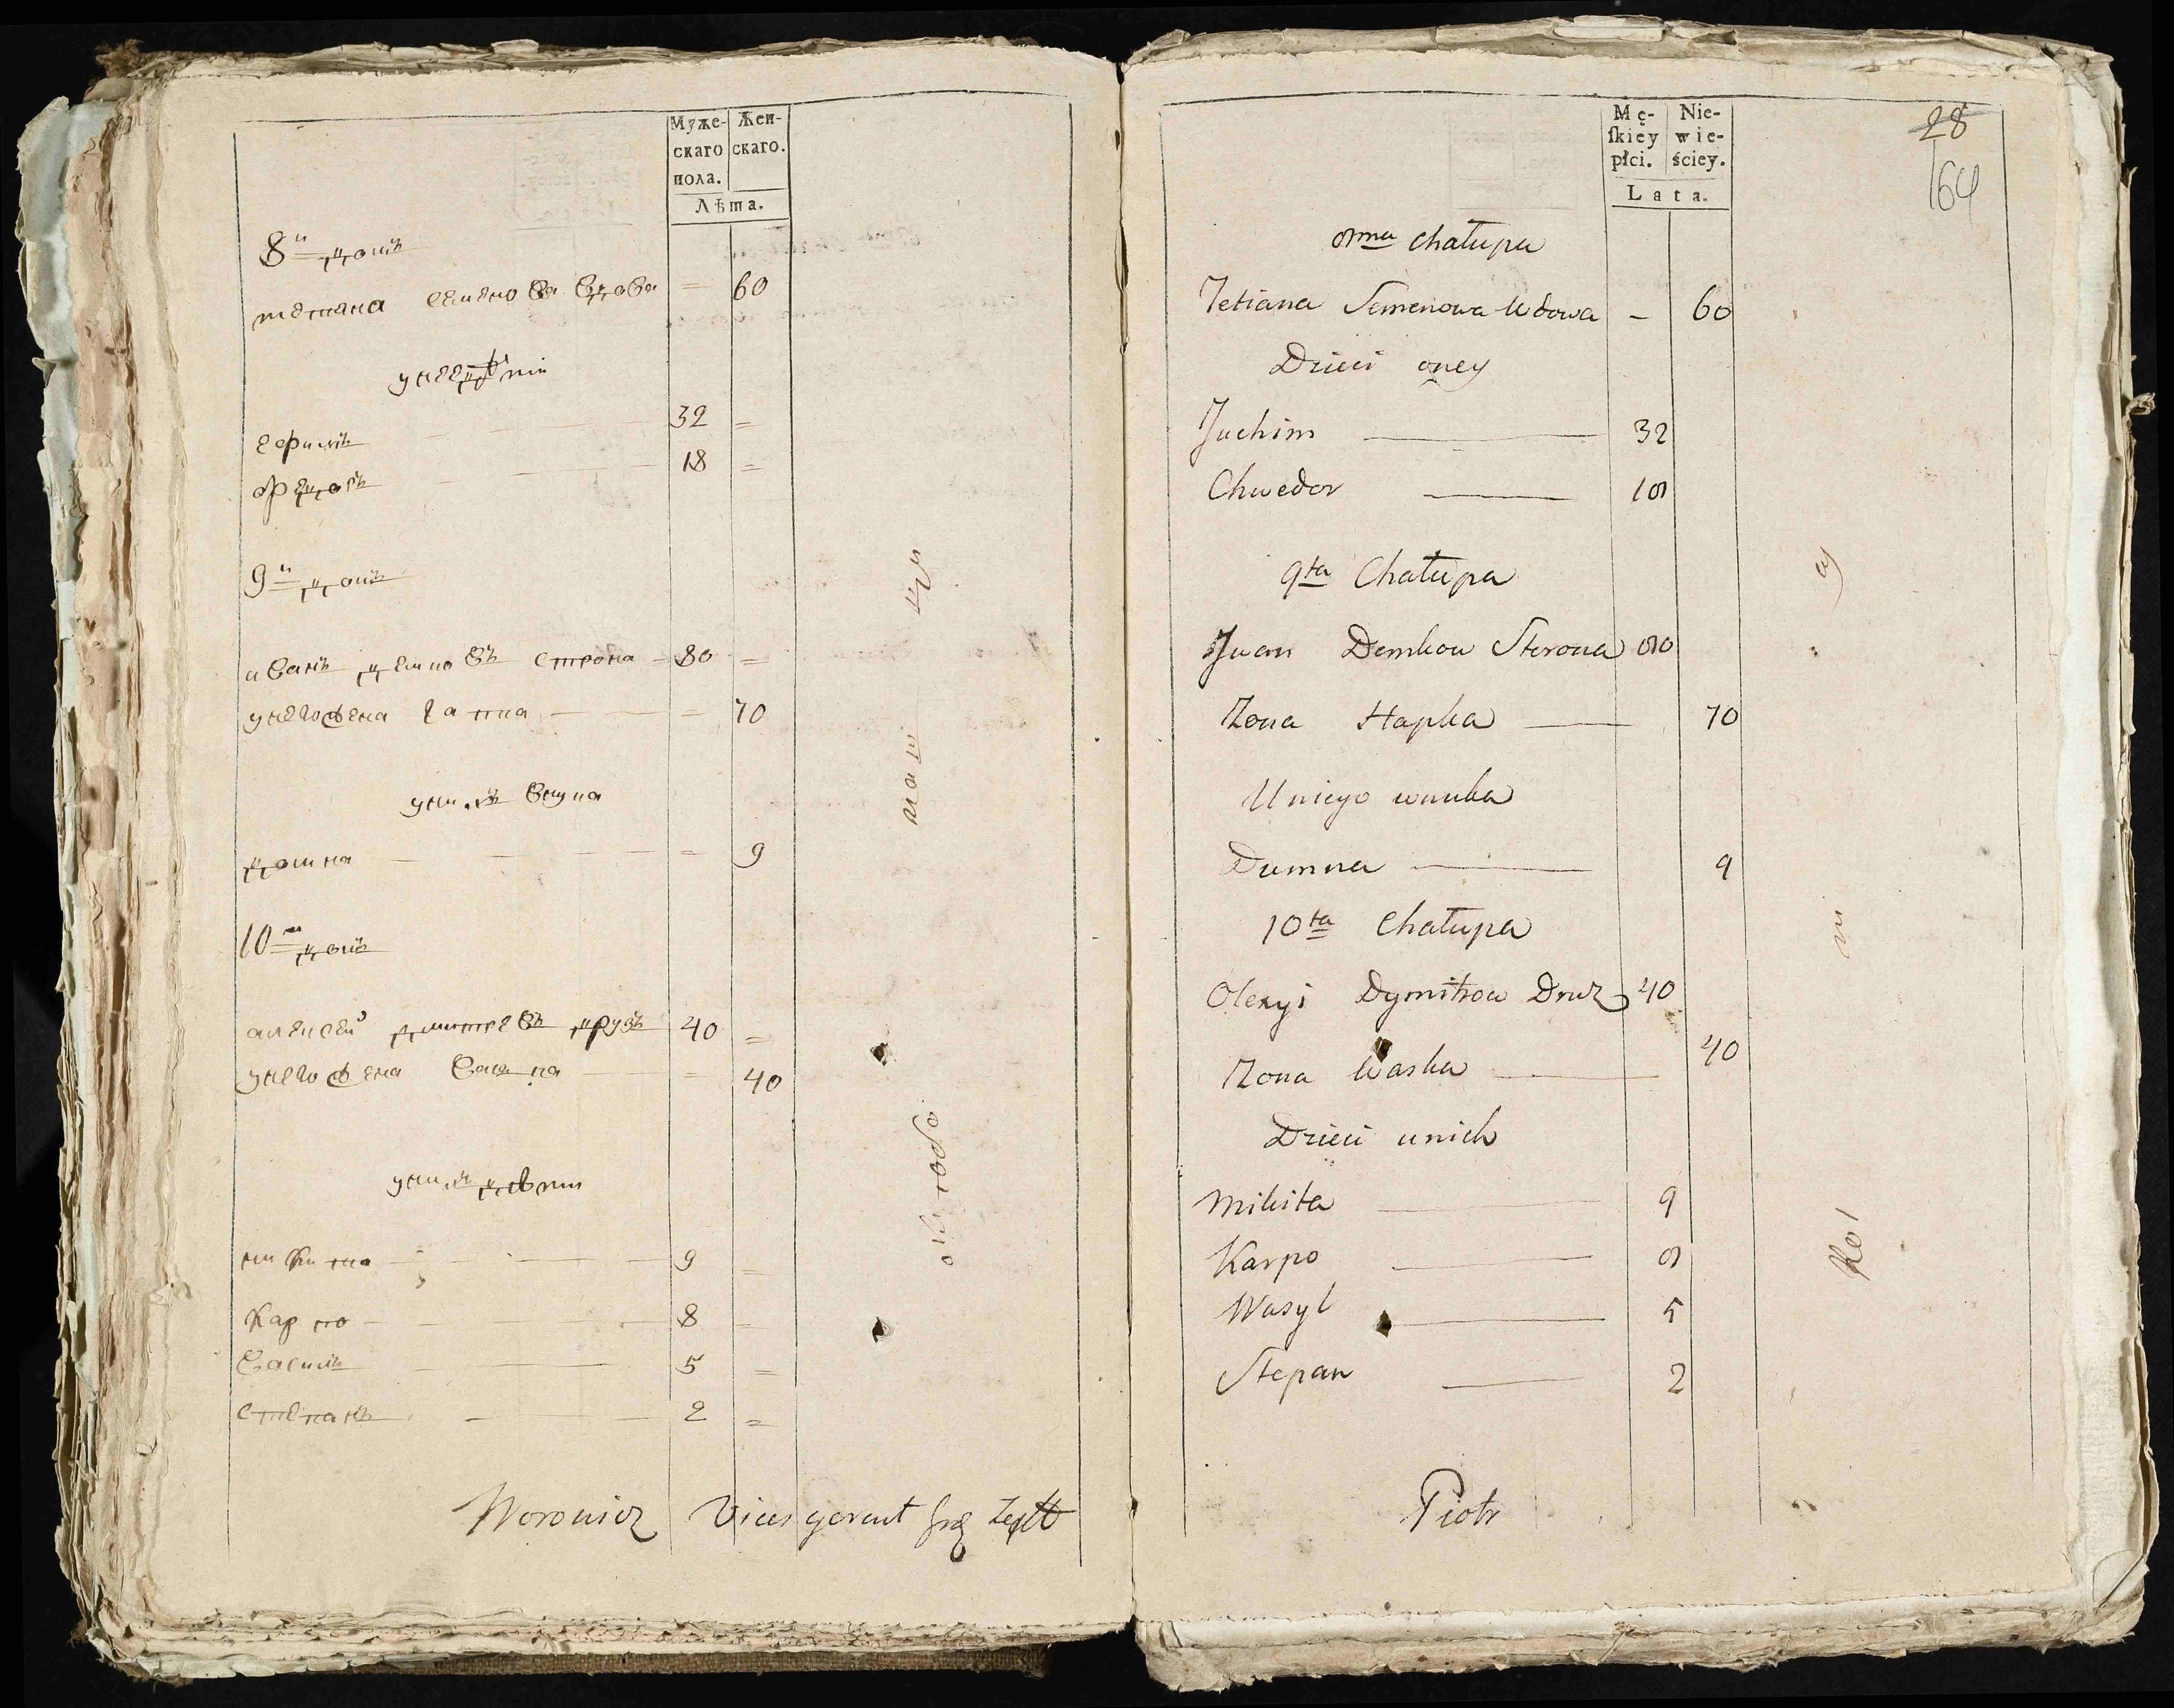 Муже- Жен-
скаго скаго.
пола.
Лѣта.
8й домъ
тетяна семенова вдова = 60
унее дѣти
ефимъ 32 =
федоръ 18 =
9й домъ
иванъ демковъ строна 80 =
унего жена гапка = 70
унихъ внука
домна = 9
10й домъ
алексей дмитревъ друзъ 40 =
унего жена васка = 40
унихъ дѣти
никита 9 =
карпо 8 =
василь 5 =
степанъ 2 =
Woronicz Vices gerent
Mę- Nie-
ſkiey wie-
płci. ściey.
Lata.
28
164
8ma Chałupa
Tetiana Semenowa Wdowa – 60
Dzieci oney
Juchim 32
Chwedor 18
9ta Chałupa
Iwan Demkow Strona 80
Żona Hapka 70
U niego wnuka
Dumna 9
10ta Chałupa
Olexyi Dymitrow Druz 40
Żona Waska 40
Dzieci unich
Mikita 9
Karpo 8
Wasyl 5
Stepan 2
Piotr